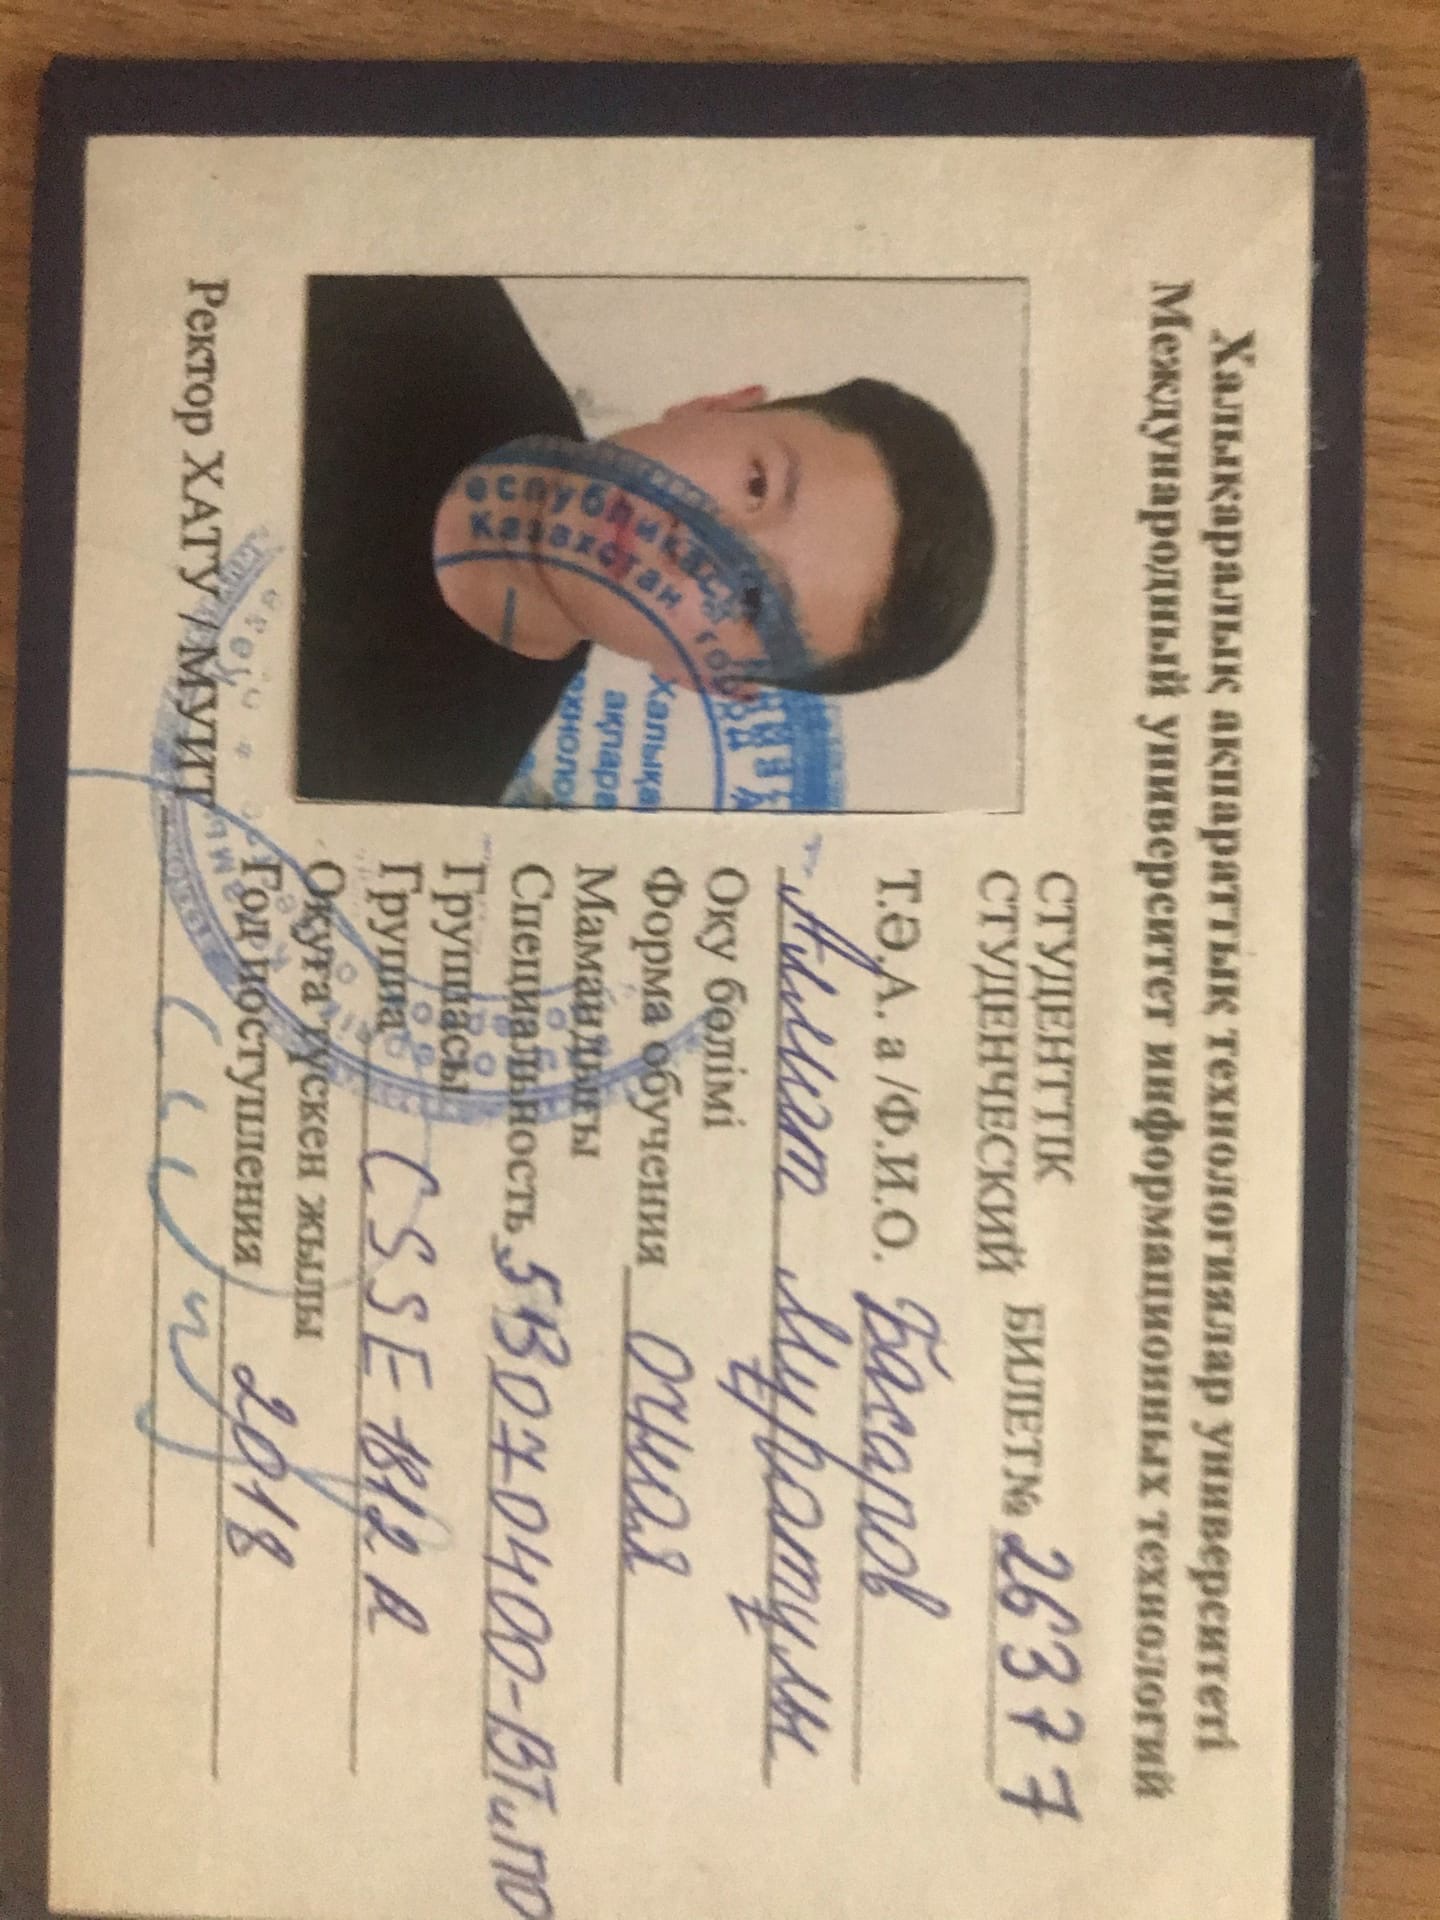 Халықаралық ақпараттық технологиялар университеті
Международный университет информационных технологий
СТУДЕНТТІК
СТУДЕНЧЕСКИЙ БИЛЕТ№ 26377
Т.Ә.А. а /Ф.И.О. Басаров
Мұратұлы
Оқу бөлімі
Форма обучения очная
Мамандығы
Специальность 5B070400-ВТиПО
Группасы
Группа CSSE-1812
Оқуға түскен жылы
Год поступления 2018
Ректор ХАТУ / МУИТ
Республикасы
Казахстан
Халықа
ақпара